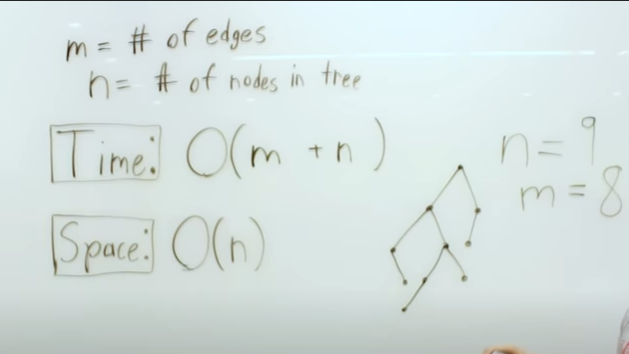 m = # of edges
n = # of nodes in tree
Time: O(m + n)
Space: O(n)
n = 9
m = 8